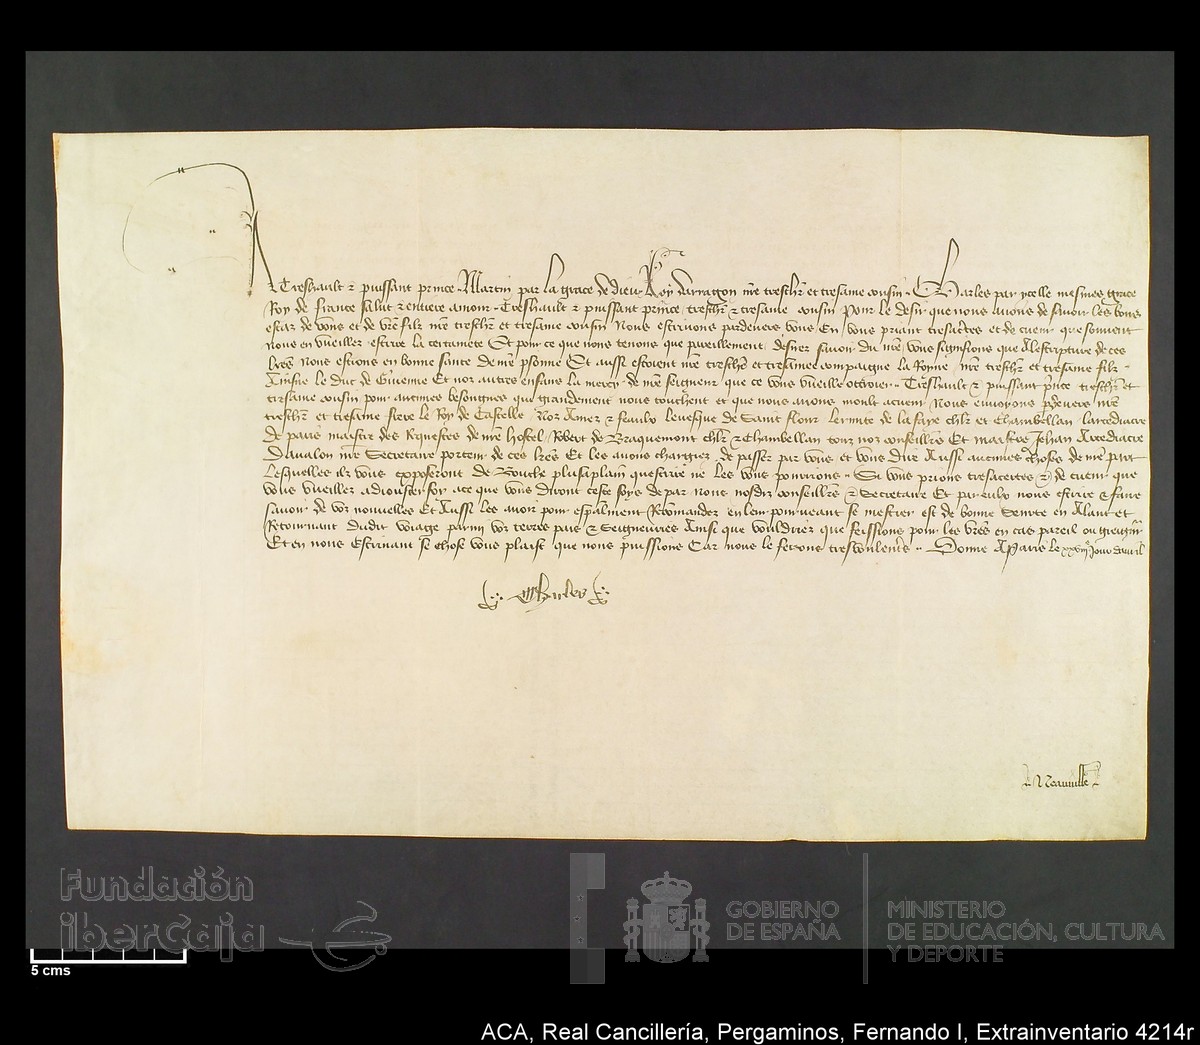 A Treshault et puissant prince Martin par la grace de dieu Roy darragon nre treschr et tresame cousin Charles par ycelle mesmes grace
Roy de france salut et entiere amour Treshault et puissant prince treschr et tresame cousin Pour le desir que nous auons de sauoir les bons
estaz de vous et de vre filz nre treschr et tresame cousin Nous escriuons pardeuers vous En vous priant tresacertes et de cuer que souuent
nous en vueillez escrire la certainete Et pour ce que nous tenons que pareillement desirez sauoir du nre vous signifions que A lescripture de ces
lres Nous estions en bonne sante de nre psonne Et aussi estoient nre treschre et tresamee compaigne la Royne nre treschr et tresame filz
Ainsne le duc de Guienne Et noz autres enfans la mercy de nre seigneur que ce vous vueille ottroier Treshault et puissant prince treschr et
tresame cousin pour aucunes besoingnes qui grandement nous touchent et que auons moult acuer Nous enuoions pdeuers nre
treschr et tresame frere le Roy de Castelle Noz Amez et feaulx leuesque de Saint flour lermite de la faye chlr et Chambellan larcediacre
de paris maistre des Requestes de nre hostel Robert de Braquemont chlr et Chambellan touz noz conseillers Et maistre Jehan Arcediacre
Daualon nre Secretaire porteurs de ces lres Et les auons chargez de passer par vous et vous dire Aussi aucunes choses de nre part
Lesquelles ilz vous exposeront de Bouche plusaplain quescrire ne les vous pourrions Si vous prions tresacertes et de cuer que
vous vueillez adiouster foy ace que vous diront ceste foys de par nous nosdiz conseillers et Secretaire Et par eulx nous escrire et faire
sauoir de voz nouuelles Et Aussi les auoir pour espalment Recomandez en leur pourueant se mestier est de bonne seurte en Alant et
Retournant dudit voiage parmi voz terres pais et Seigneuries Ainsi que vouldriez que feissions pour les vres en cas pareil ou greigneur
Et en nous Escriuant se chose vous plaist que nous puissions Car nous le ferons tresvoulentiers Donne A Paris le xxviije Jour dauril
Charles
Neauville
Fundación
iberCaja
GOBIERNO
DE ESPAÑA
MINISTERIO
DE EDUCACIÓN, CULTURA
Y DEPORTE
5 cms
ACA, Real Cancillería, Pergaminos, Fernando I, Extrainventario 4214r